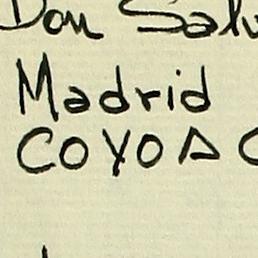 Don Salv
Madrid
COYOAC